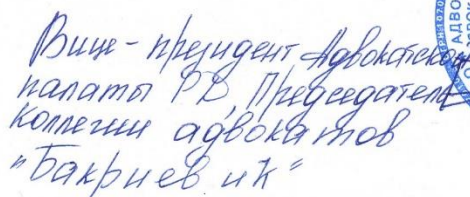 Вице-президент Адвокатской
палаты РД, Председатель
коллегии адвокатов
"Бакриев и К"
АДВО